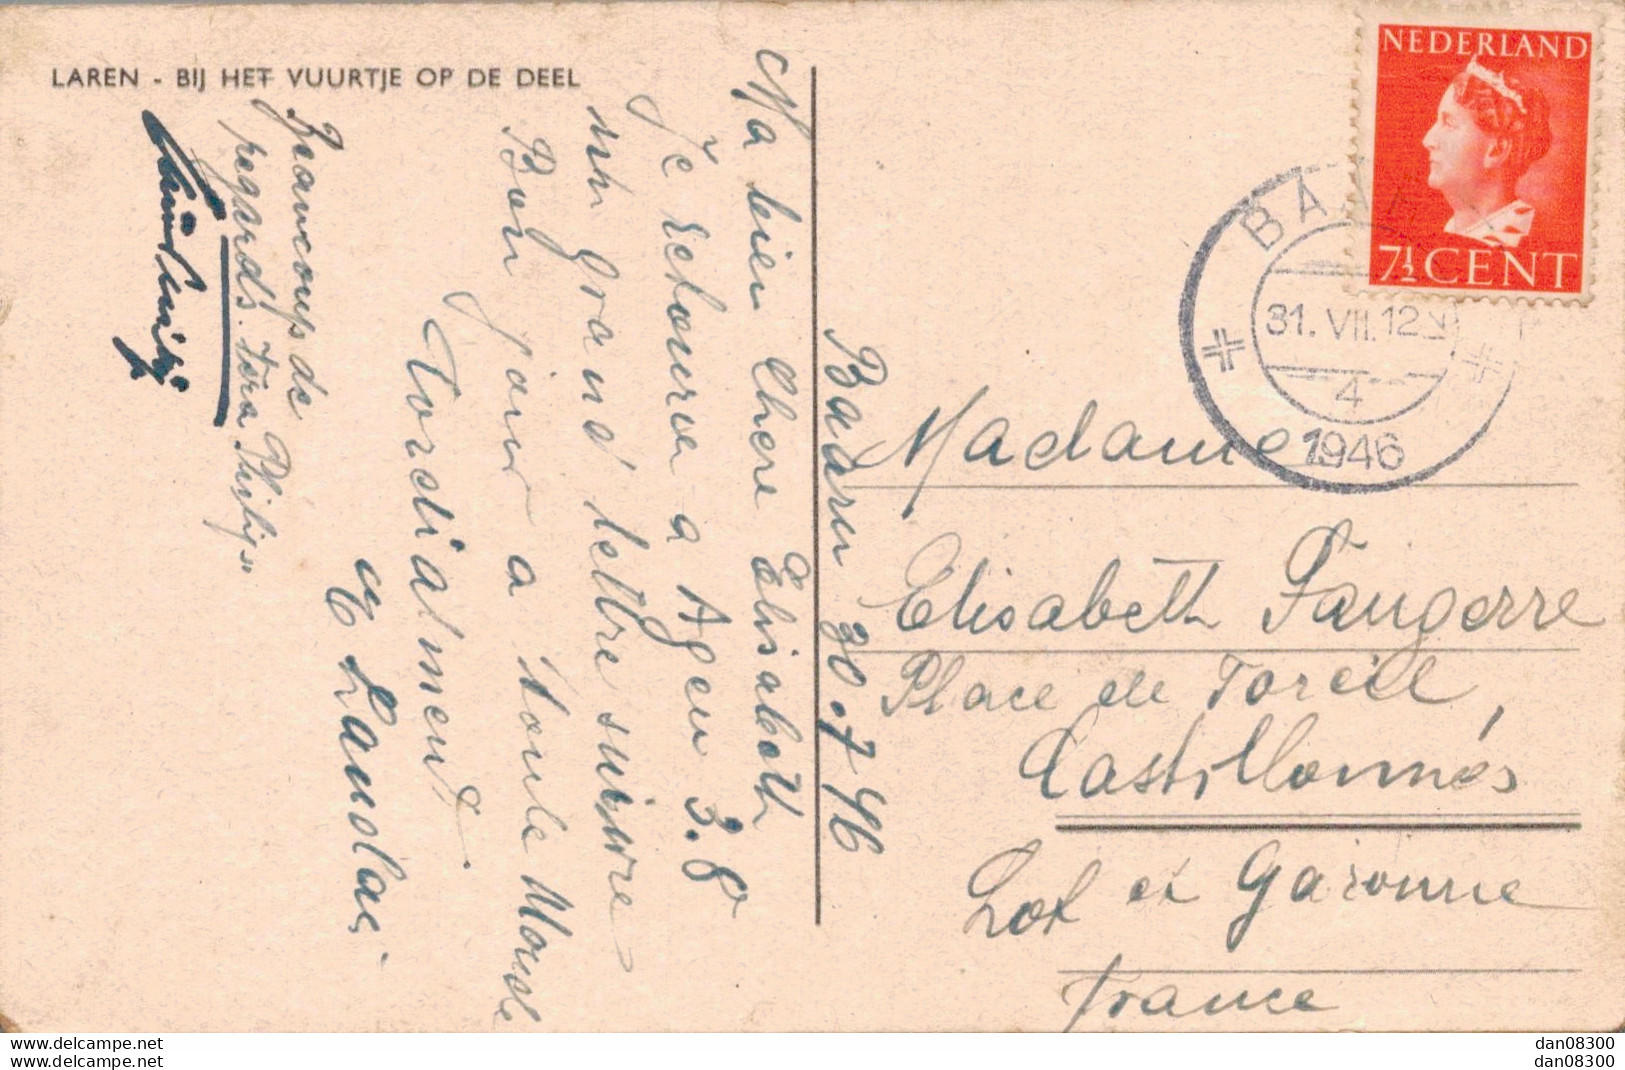 LAREN - BIJ HET VUURTJE OP DE DEEL
Baarn 30.7 46
Ma bien Chere Elisabeth
Je retourve a Agen 3.8
un grand lettre suivre
Bon jour a toule Monde
Cordialment
Beaucoups de
regards. Tora Philip"
NEDERLAND
7½ CENT
BAARN
31. VII. 12
4
1946
Madame
Elisabeth Faugerre
Place de
Castillonnés
Lot et Garonne
France
www.delcampe.net
dan08300
dan08300